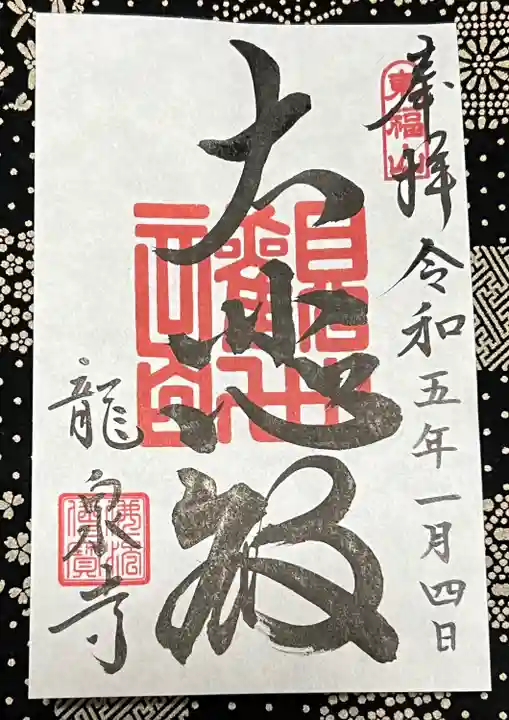 奉拝 令和五年一月四日
東福山
大悲殿
龍泉寺
佛法僧寳